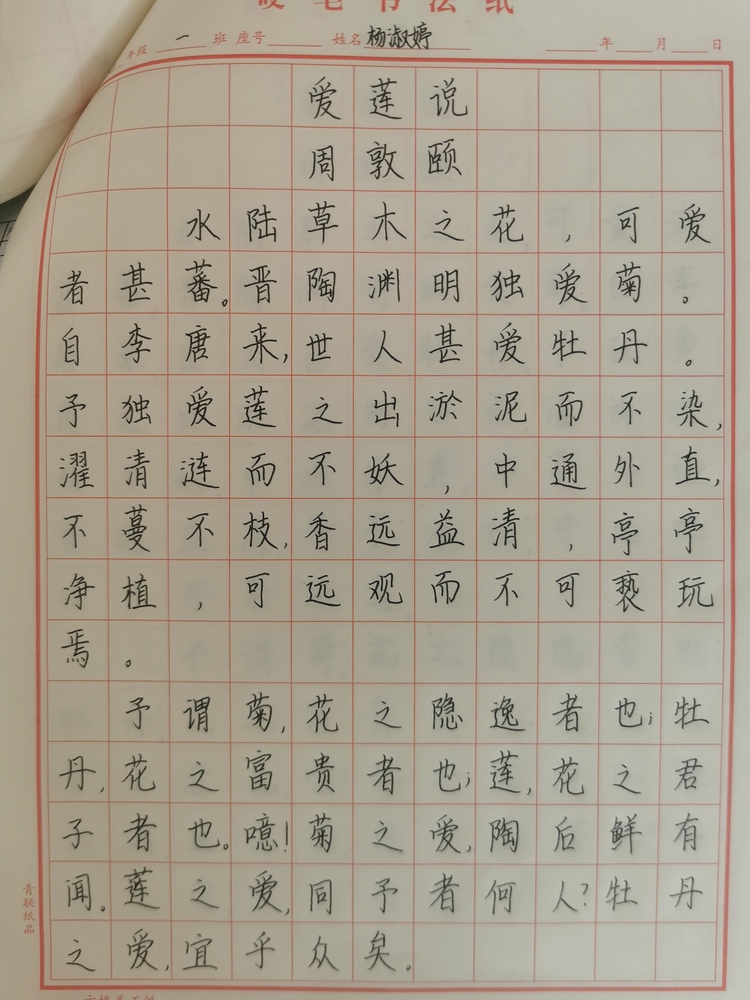 硬笔书法纸
年级 一 班 座号 姓名 杨淑婷 年 月 日
爱莲说
周敦颐
水陆草木之花，可爱
者甚蕃。晋陶渊明独爱菊。
自李唐来，世人甚爱牡丹。
予独爱莲之出淤泥而不染，
濯清涟而不妖，中通外直，
不蔓不枝，香远益清，亭亭
净植，可远观而不可亵玩
焉。
予谓菊，花之隐逸者也；牡
丹，花之富贵者也；莲，花之君
子者也。噫！菊之爱，陶后鲜有
闻。莲之爱，同予者何人？牡丹
之爱，宜乎众矣。
青联纸品